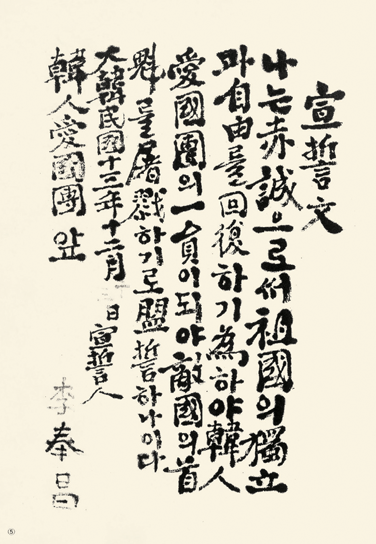 宣誓文
나는赤誠으로써祖國의獨立
과自由를回復하기爲하야韓人
愛國團의一員이되야敵國의首
魁를屠戮하기로盟誓하나이다
大韓民國十三年十二月 日 宣誓人
韓人愛國團 앞
李奉昌
⑤